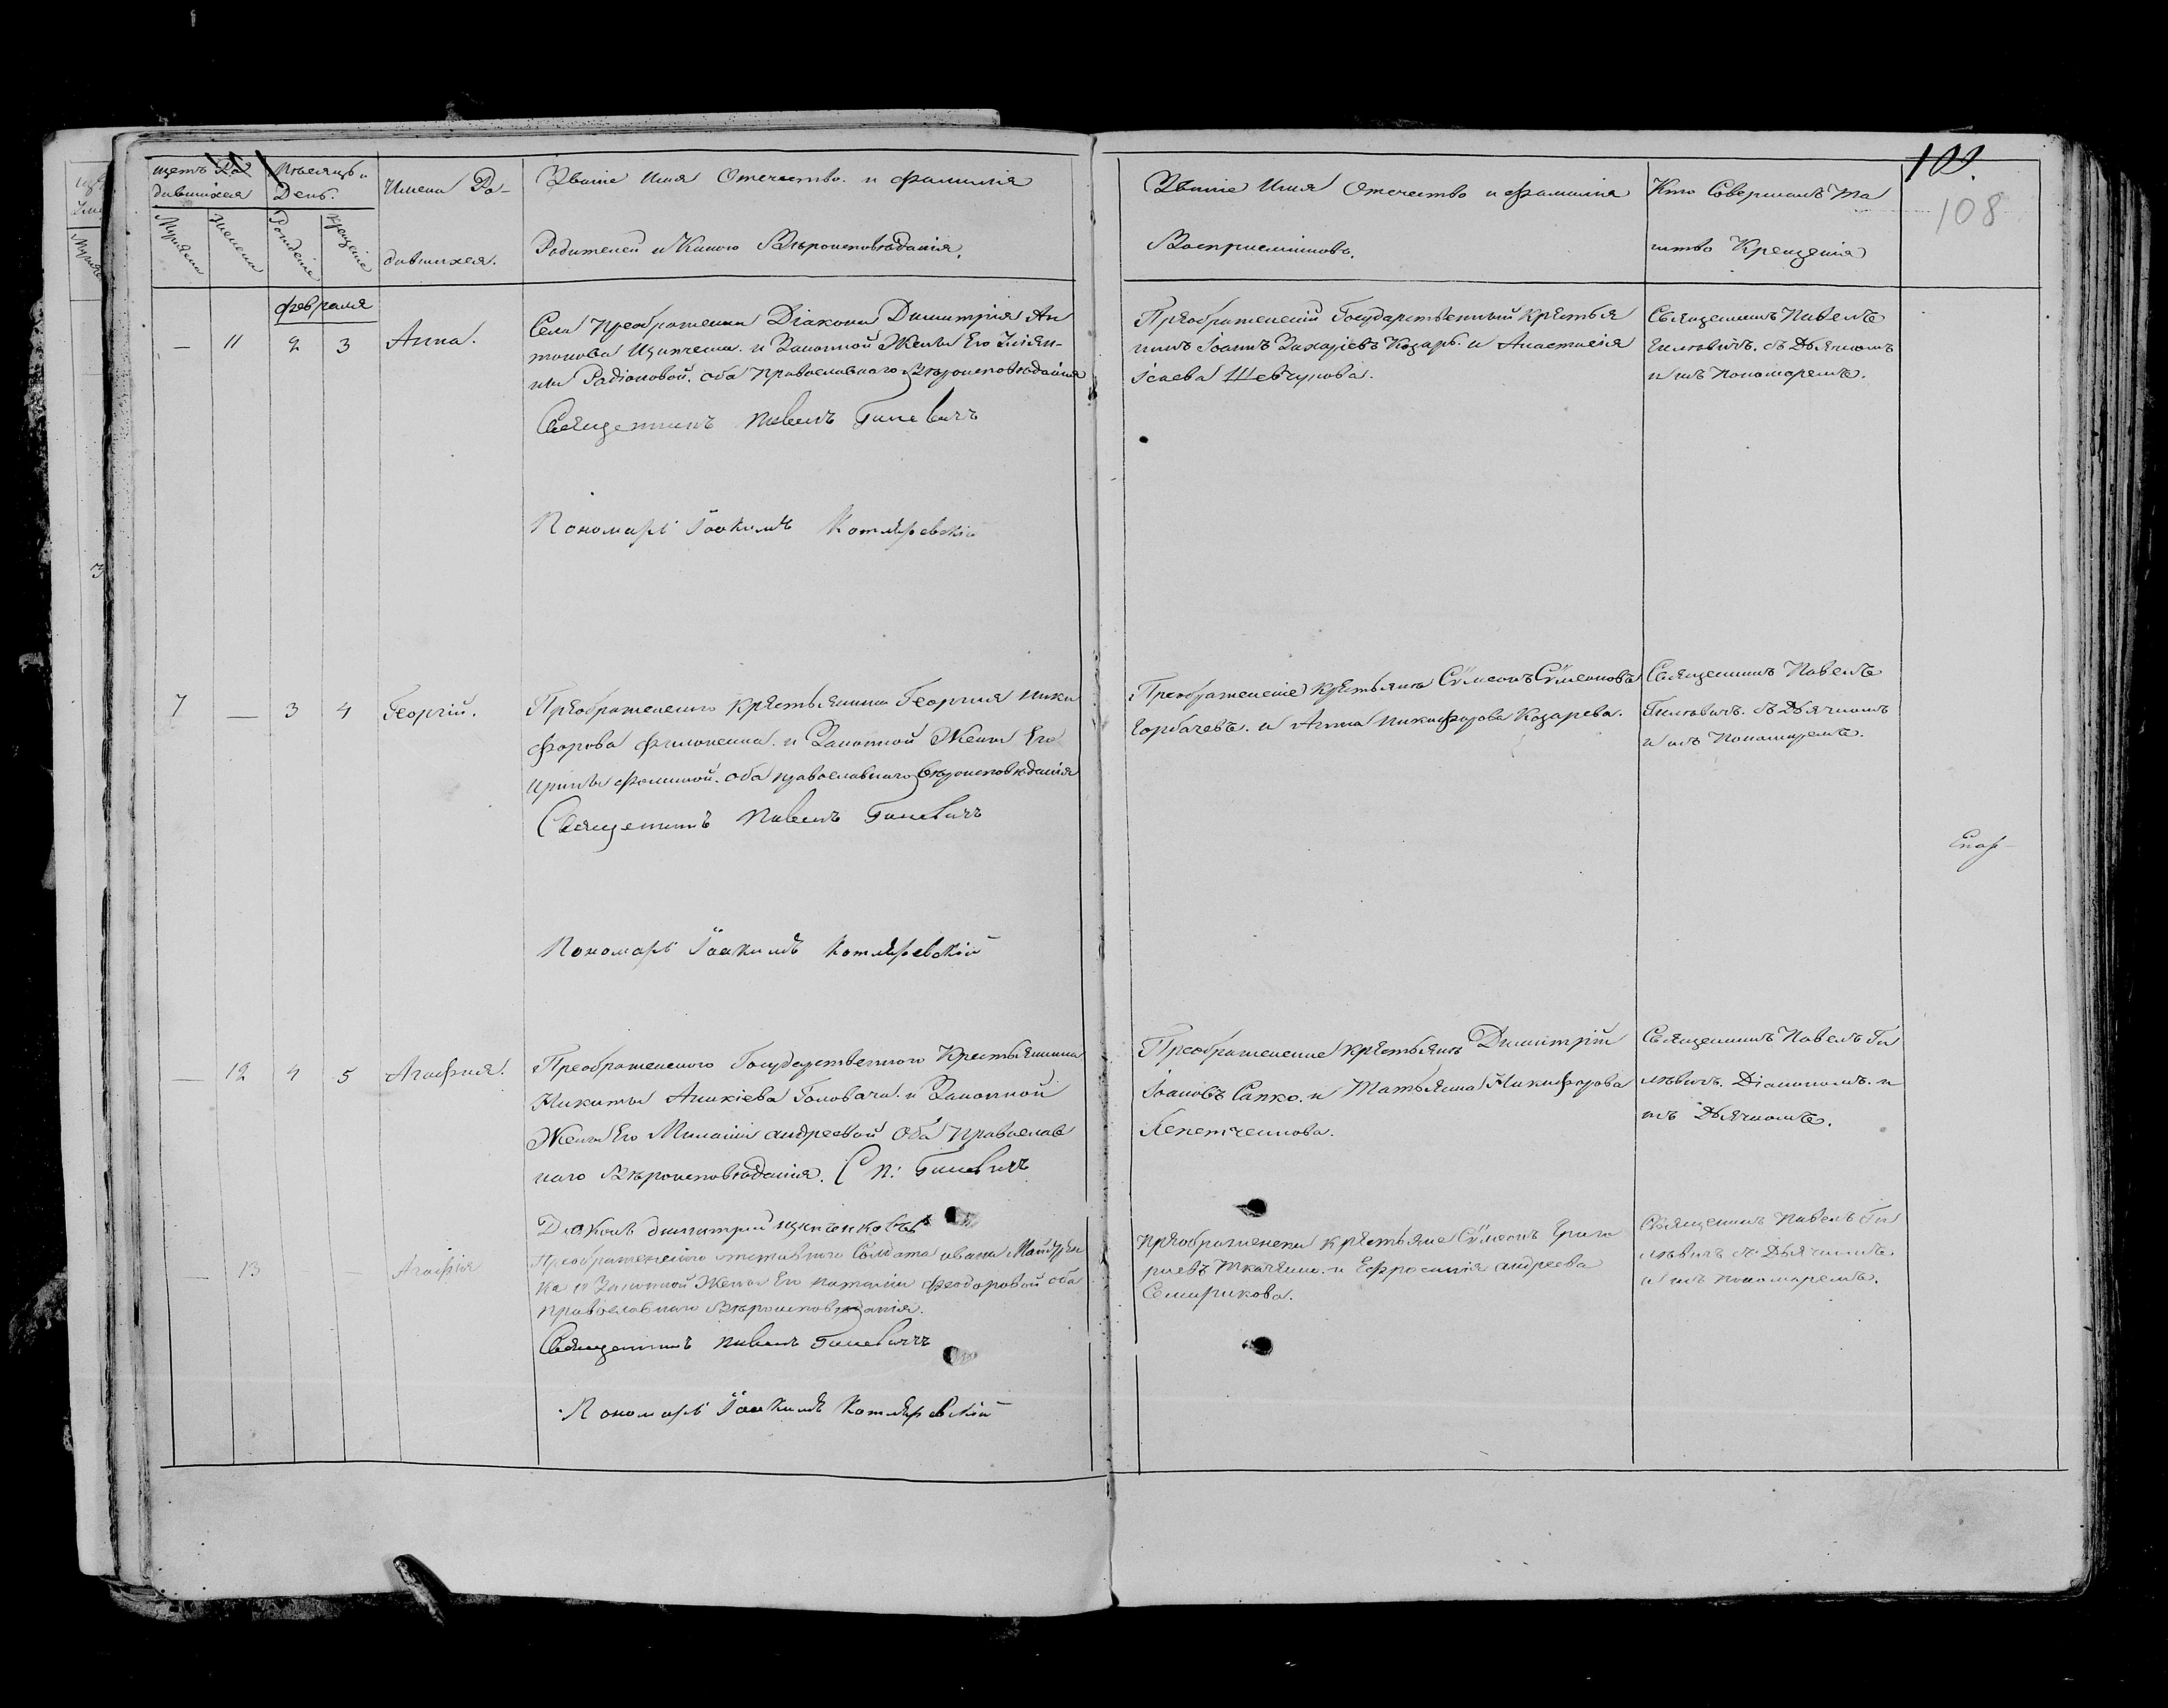 щетъ Ро
дившихся
Мѣсяцъ и
День.
Мужеска
Женска
Рожденіе
Крещеніе
Имена Ро-
дившихся.
Званіе Имя Отечество. и фамилія
Родителей и Какого Вѣроисповѣданія.
Званіе Имя Отечество и фамилія
Воспріемниковъ.
Кто Совершалъ Та
инство Крещенія
108
февраля
— 11 2 3 Анна.
Села Преображенки Діакона Димитрія Ан
тонова Ищенкова. и Законной Жены Его
Радіоновой. оба Православного Вѣроисповѣданія
Священникъ Павелъ Гилевичъ
Пономарь Іоакимъ Котляревскій
Преображенскій Государственный Крестья
нинъ Іоаннъ Захаріевъ Козарь. и Анастасія
Ісаева Шевчукова.
Священникъ Павелъ
Гилевичъ. съ Дьячкомъ
и съ Пономаремъ.
7 — 3 4 Георгій.
Преображенского крестьянина Георгія Ники
форова филоненка. и Законной Жены Его
Ирины фоминой. оба православного вѣроисповѣданія
Священникъ Павелъ Гилевичъ
Пономарь Іоакимъ Котляревскій
Преображенскіе крестьяне Сѵмеонъ Сѵмеоновъ
Горбачевъ. и Анна Никифорова Козарева.
Священникъ Павелъ
Гилевичъ. съ Дьячкомъ
и съ Пономаремъ.
— 12 4 5 Агафия.
Преображенского Государственного Крестьянина
Никиты Аникіева Головача. и Законной
Жены Его Меланіи андреевой Оба Православ
ного Вѣроисповѣданія. С П: Гилевичъ
Диаконъ димитрий
Преображенскіе крестьяне Димитрій
Іоановъ Сапко. и Татьяна Никифорова
Священникъ Павелъ Ги
левичъ. Діакономъ. и
съ Дьячкомъ.
— 13 — — Агафія
Преображенского отставного Солдата ивана
ка и Законной Жены Его наталіи феодоровой оба
православного Вѣроисповѣданія.
Священникъ Павелъ Гилевичъ
Пономарь Іоакимъ Котляревскій
преображенски крестьяне Сѵмеонъ Григо
риевъ и Ефросинія андреева
Семирикова.
Священникъ Павелъ Ги
левичъ съ Дьячкомъ.
и съ пономаремъ.